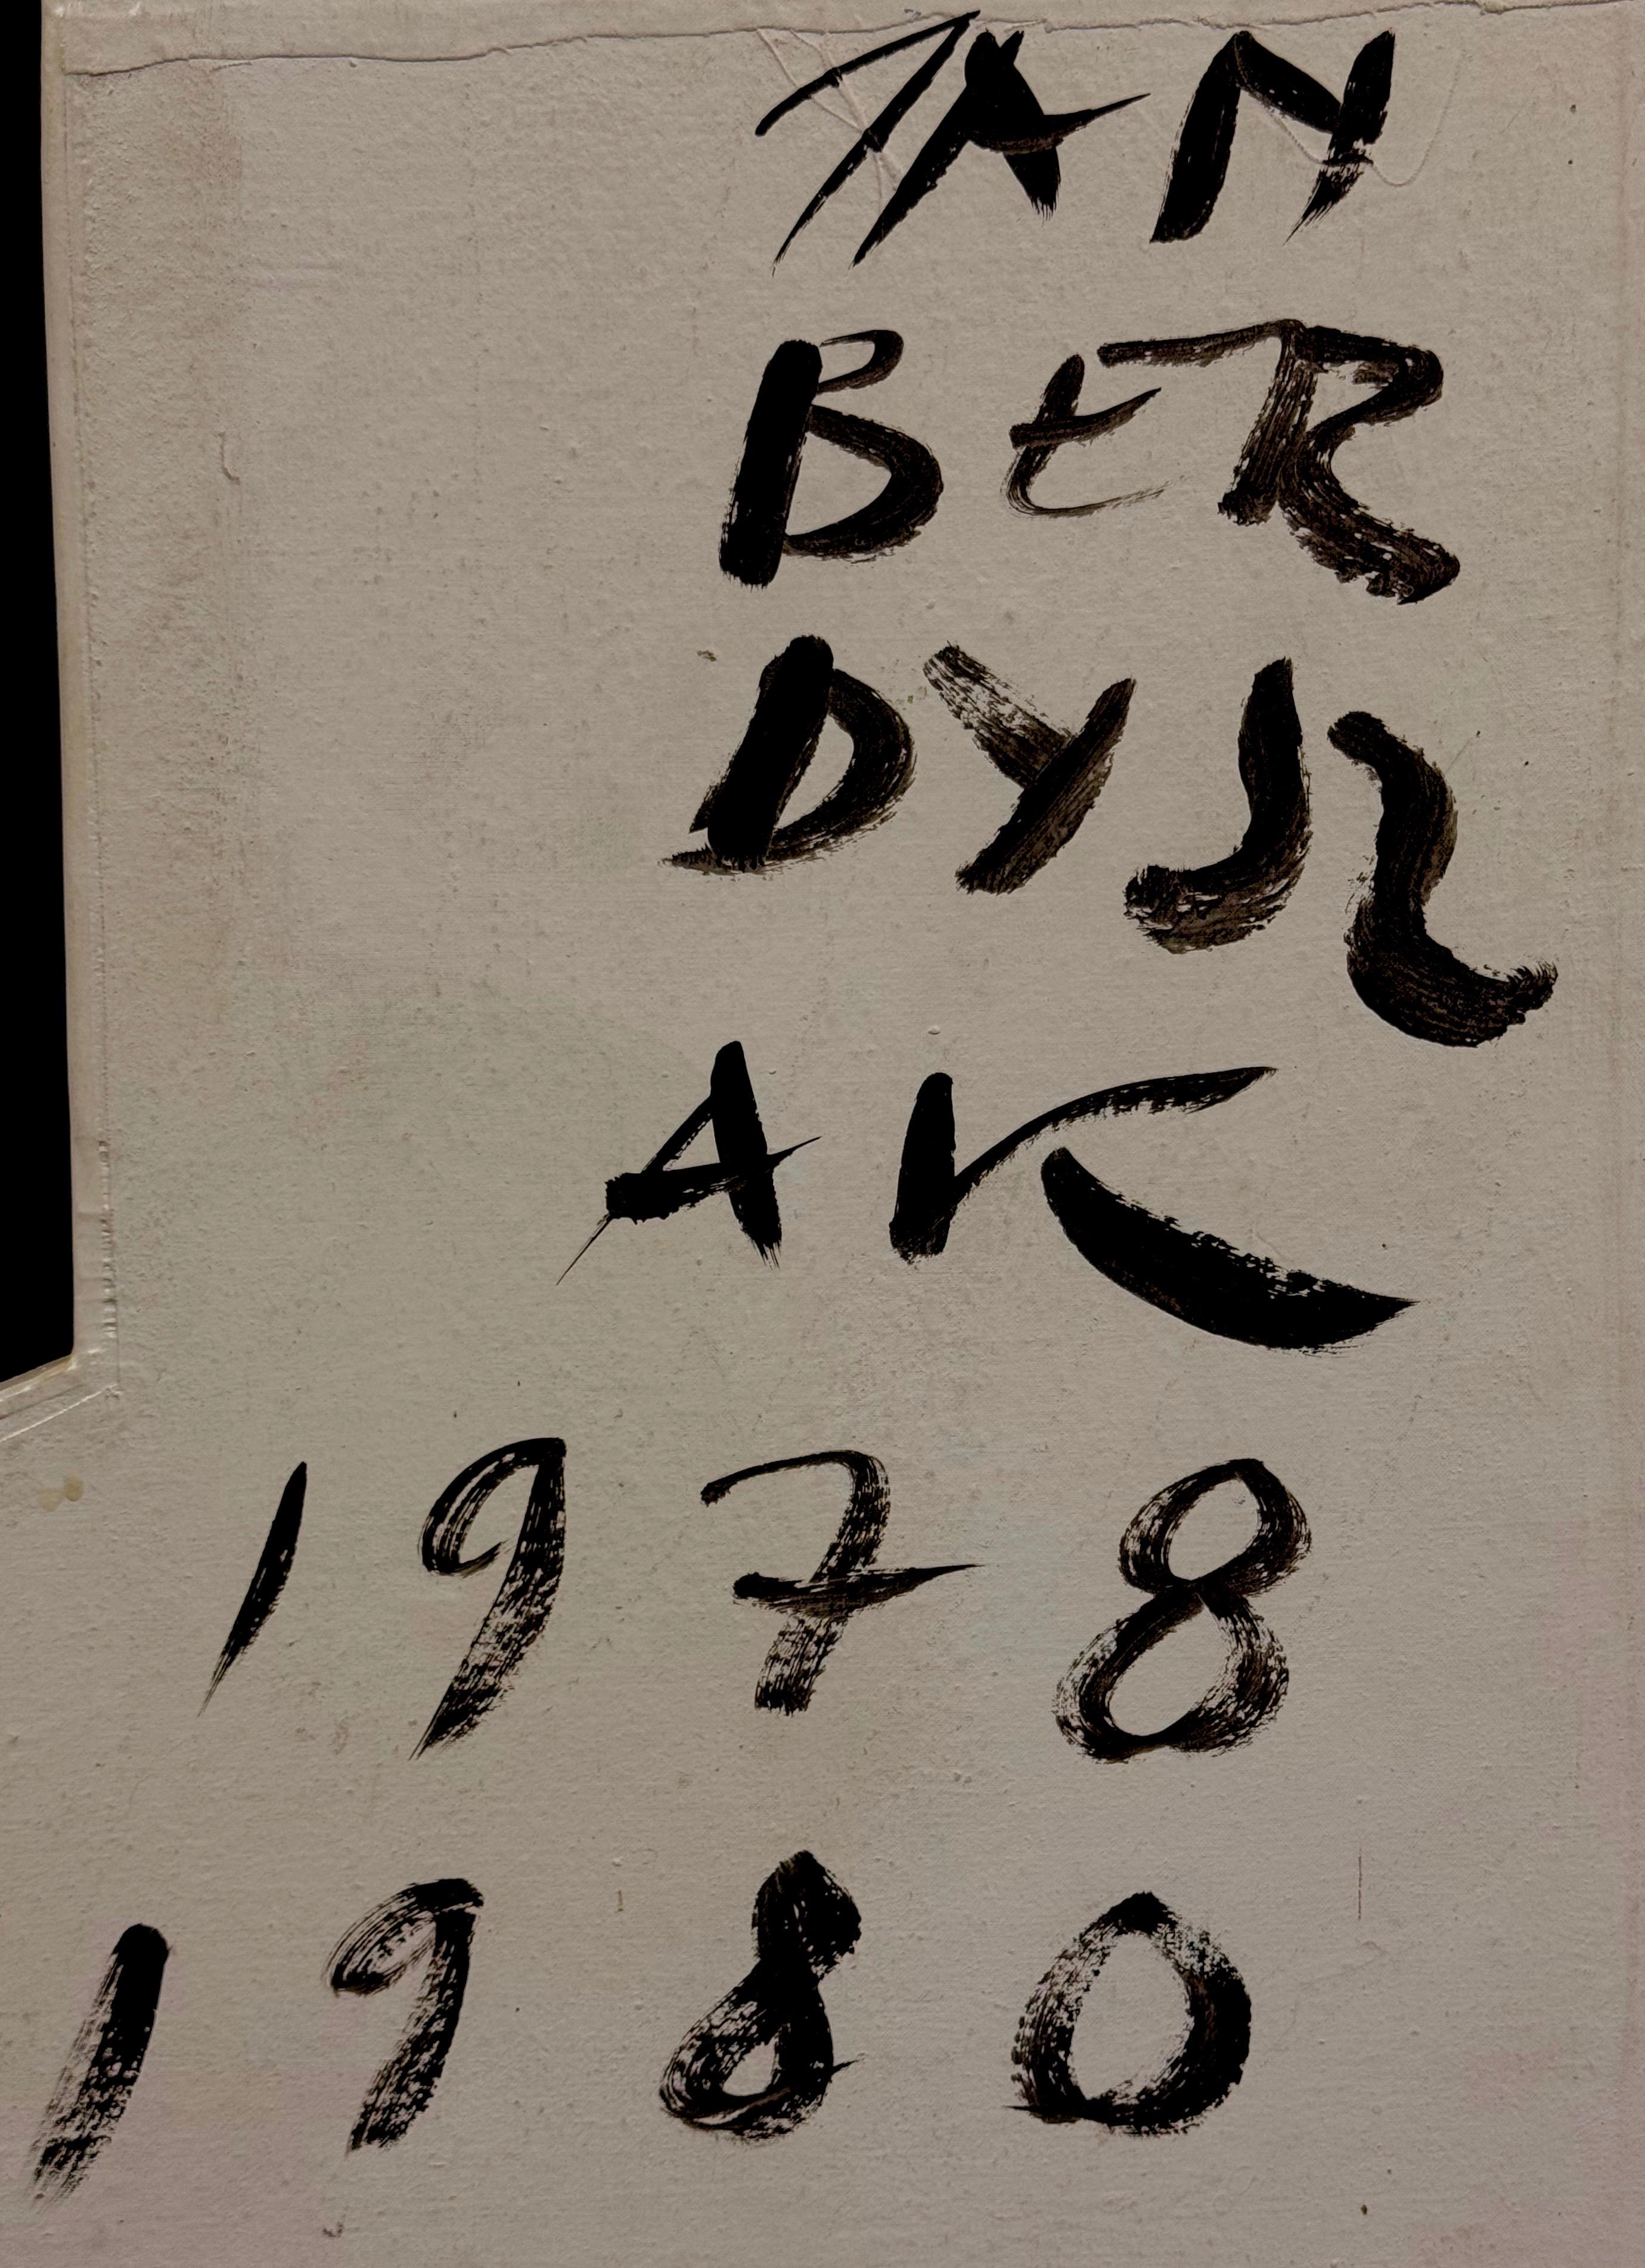 JAN
BER
DYSZ
AK
1978
1980